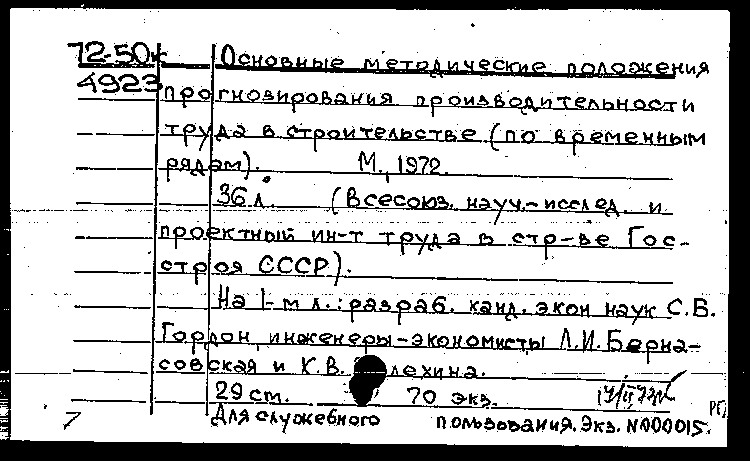 72-50к Основные методические положения
4923 прогнозирования производительности
труда в строительстве (по временным
рядам). М., 1972.
36 л. (Всесоюз. науч.-исслед. и
проектный ин-т труда в стр-ве Гос-
строя СССР).
На 1-м л.: разраб. канд. экон наук С.В.
Гордон, инженеры-экономисты Л.И. Берна-
совская и К.В. лехина.
29 см. 70 экз.
Для служебного пользования. Экз. N000015.
7